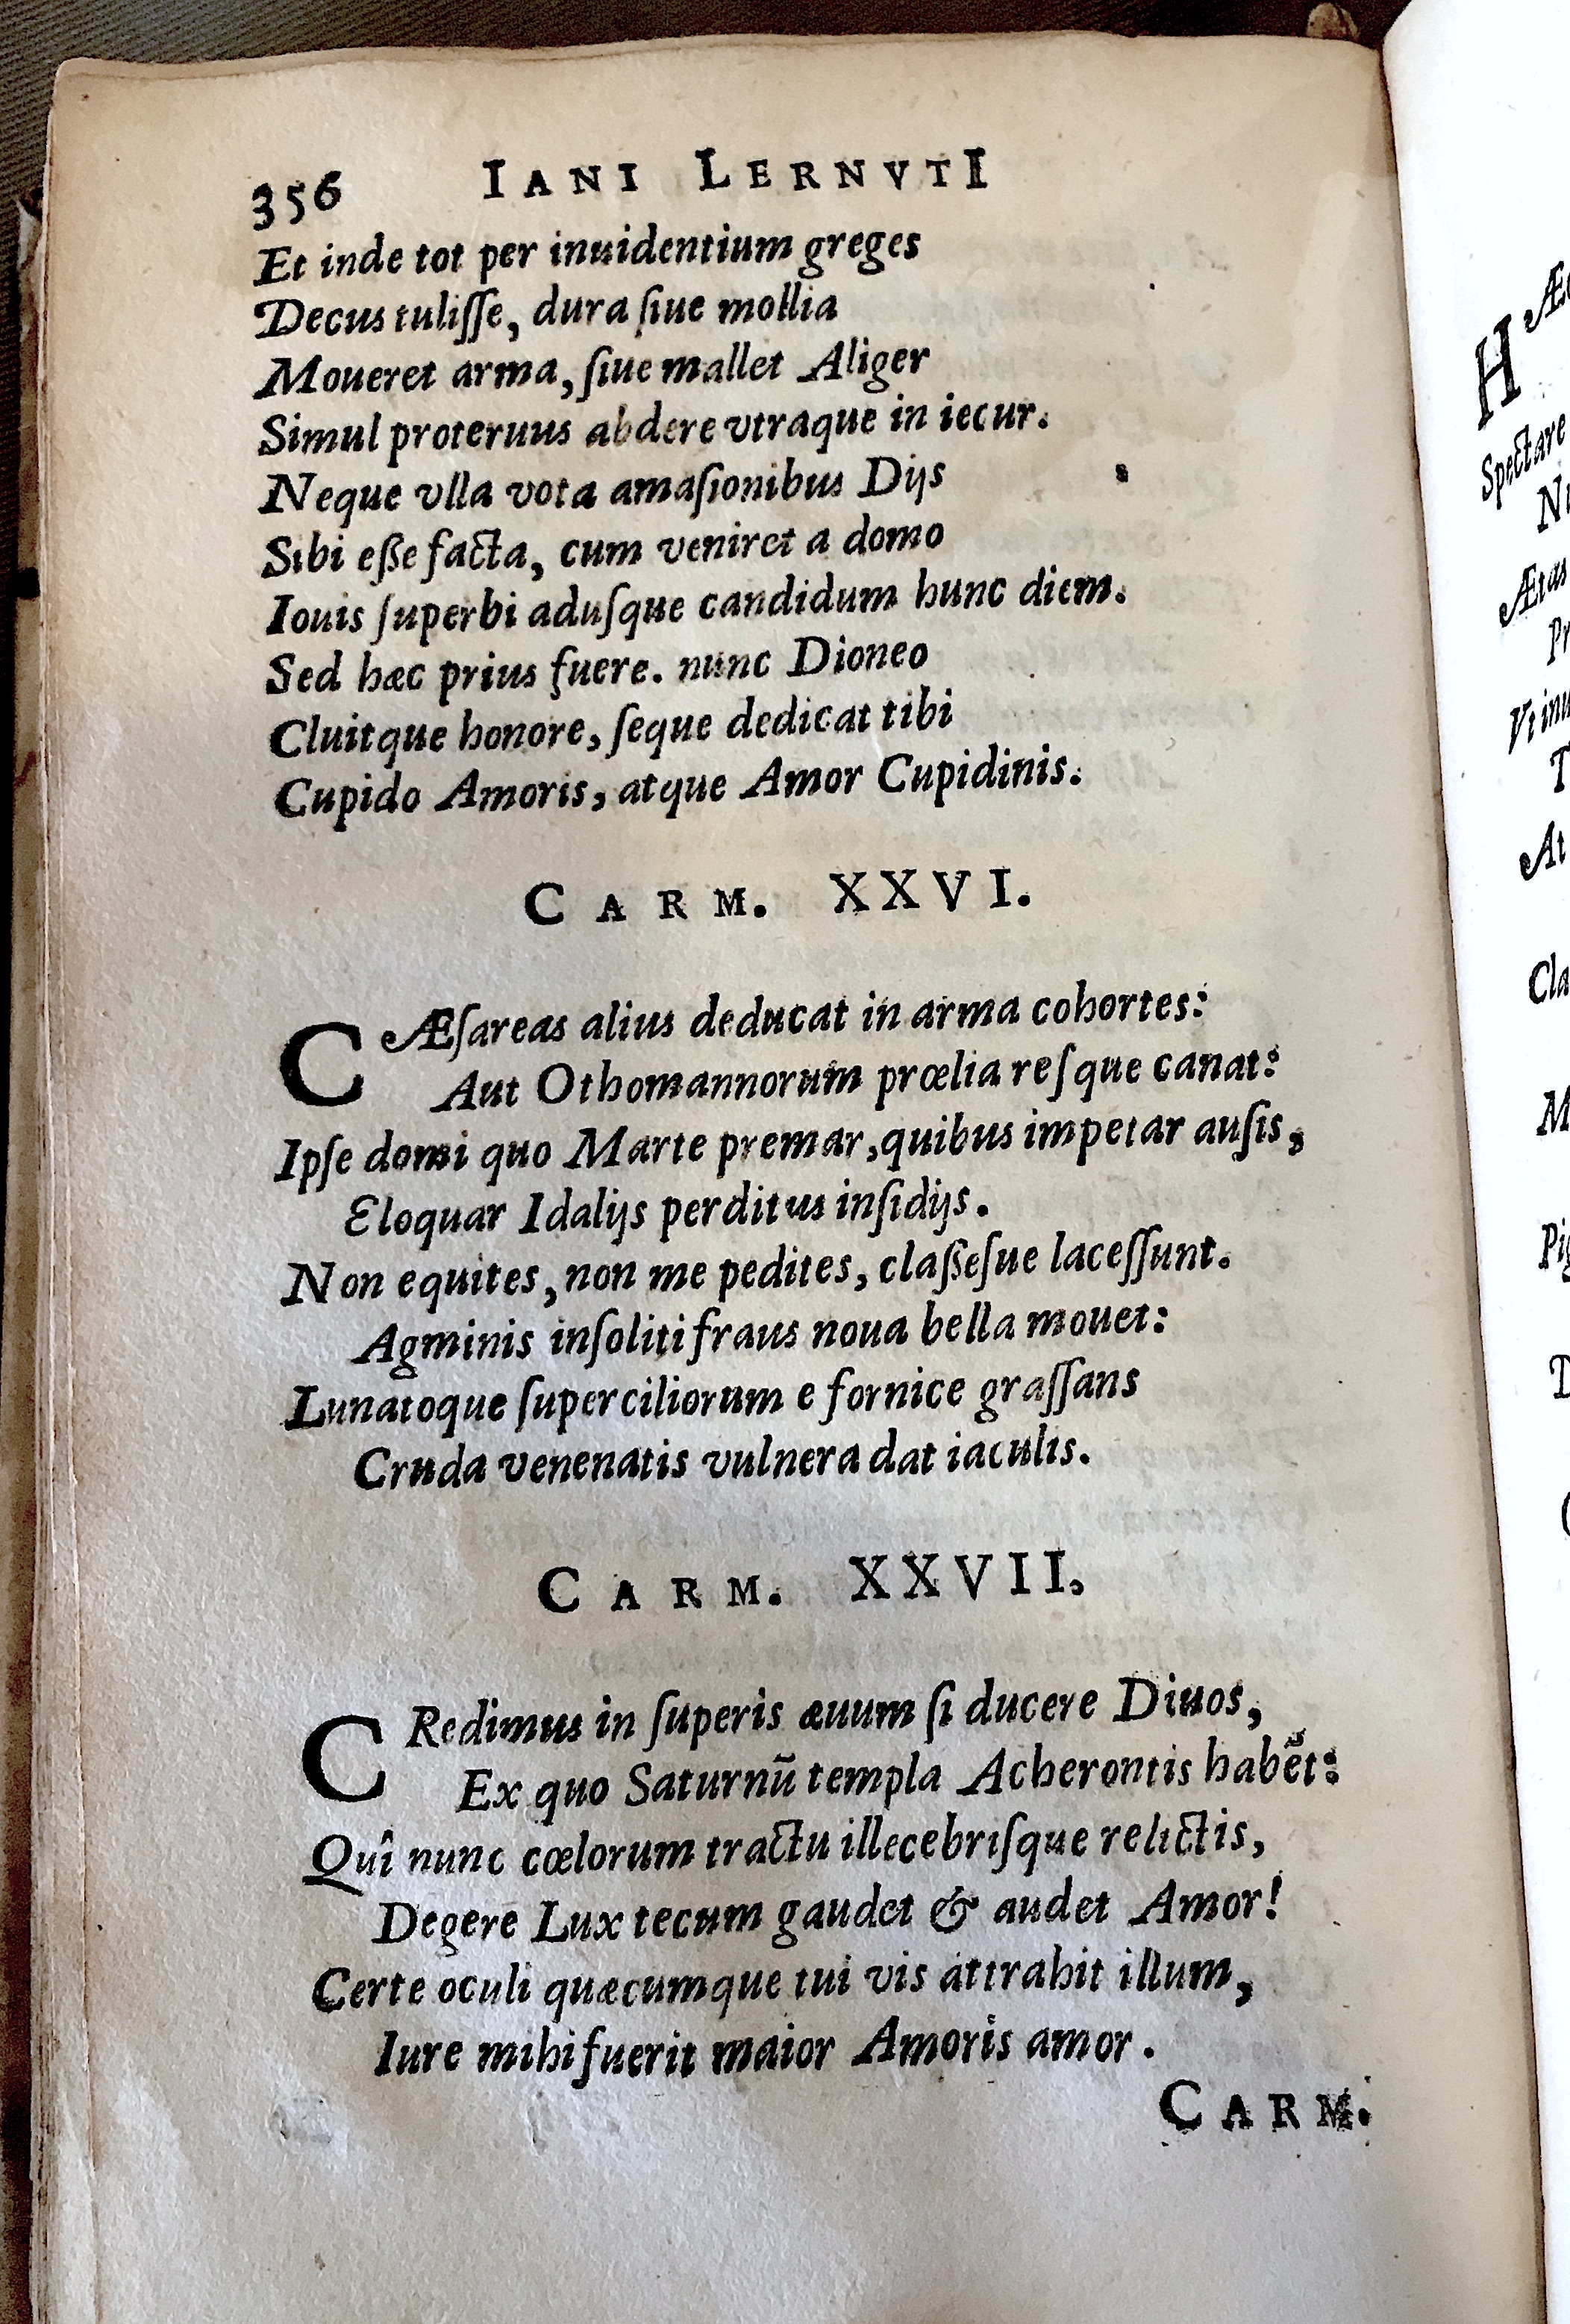 356 IANI LERNVTI
Et inde tot per inuidentium greges
Decus tuliſſe, dura ſiue mollia
Moueret arma, ſiue mallet Aliger
Simul proteruus abdere vtraque in iecur.
Neque vlla vota amaſionibus Dijs
Sibi eße facta, cum veniret a domo
Iouis ſuperbi aduſque candidum hunc diem.
Sed hæc prius fuere. nunc Dioneo
Cluitque honore, ſeque dedicat tibi
Cupido Amoris, atque Amor Cupidinis.
CARM. XXVI.
CÆſareas alius deducat in arma cohortes:
Aut Othomannorum prœlia reſque canat:
Ipſe domi quo Marte premar, quibus impetar auſis,
Eloquar Idalijs perditus inſidijs.
Non equites, non me pedites, claßeſue laceſſunt.
Agminis inſoliti fraus noua bella mouet:
Lunatoque ſuperciliorum e fornice graſſans
Cruda venenatis vulnera dat iaculis.
CARM. XXVII.
CRedimus in ſuperis æuum ſi ducere Diuos,
Ex quo Saturnū templa Acherontis habēt:
Quî nunc cœlorum tractu illecebriſque relictis,
Degere Lux tecum gaudet & audet Amor!
Certe oculi quæcumque tui vis attrahit illum,
Iure mihi fuerit maior Amoris amor.
CARM.
H
Æ
Spectare
Ætas
Vt inu
At
Cla